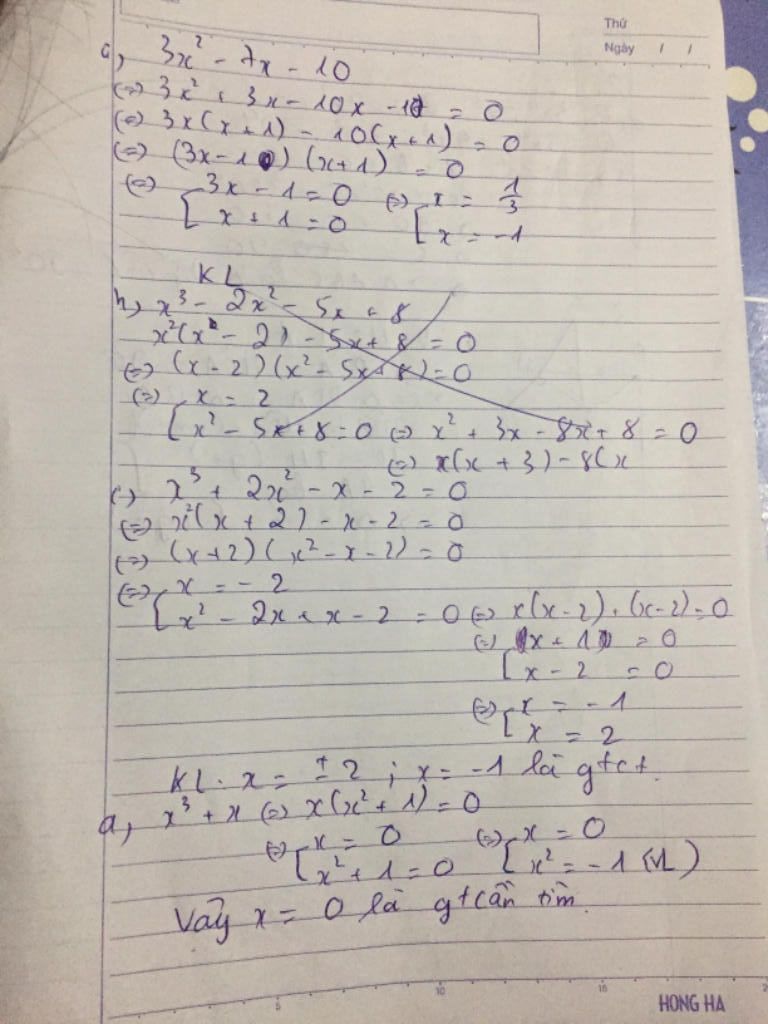 Thứ
Ngày / /
a, 3x² - 7x - 10
(=) 3x² + 3x - 10x - 10 = 0
(=) 3x(x+1) - 10(x+1) = 0
(=) (3x-10)(x+1) = 0
(=) [ 3x - 1 = 0 (=) [ x = 1/3
x + 1 = 0 x = -1
KL
h, x³ - 2x² - 5x + 8
x²(x - 2) - 5x + 8 = 0
(=) (x - 2)(x² - 5x + 8) = 0
(=) [ x = 2
x² - 5x + 8 = 0 (=) x² + 3x - 8x + 8 = 0
(=) x(x + 3) - 8(x
x³ + 2x² - x - 2 = 0
(=) x²(x + 2) - x - 2 = 0
(=) (x+2)(x² - x - 2) = 0
(=) [ x = - 2
x² - 2x + x - 2 = 0 (=) x(x-2) + (x-2) = 0
(=) [ x + 1 = 0
x - 2 = 0
(=) [ x = -1
x = 2
KL. x = ± 2 ; x = -1 là gtct.
a, x³ + x (=) x(x² + 1) = 0
(=) [ x = 0 (=) [ x = 0
x² + 1 = 0 x² = -1 (VL)
Vậy x = 0 là gt cần tìm.
5 10 15
HONG HA